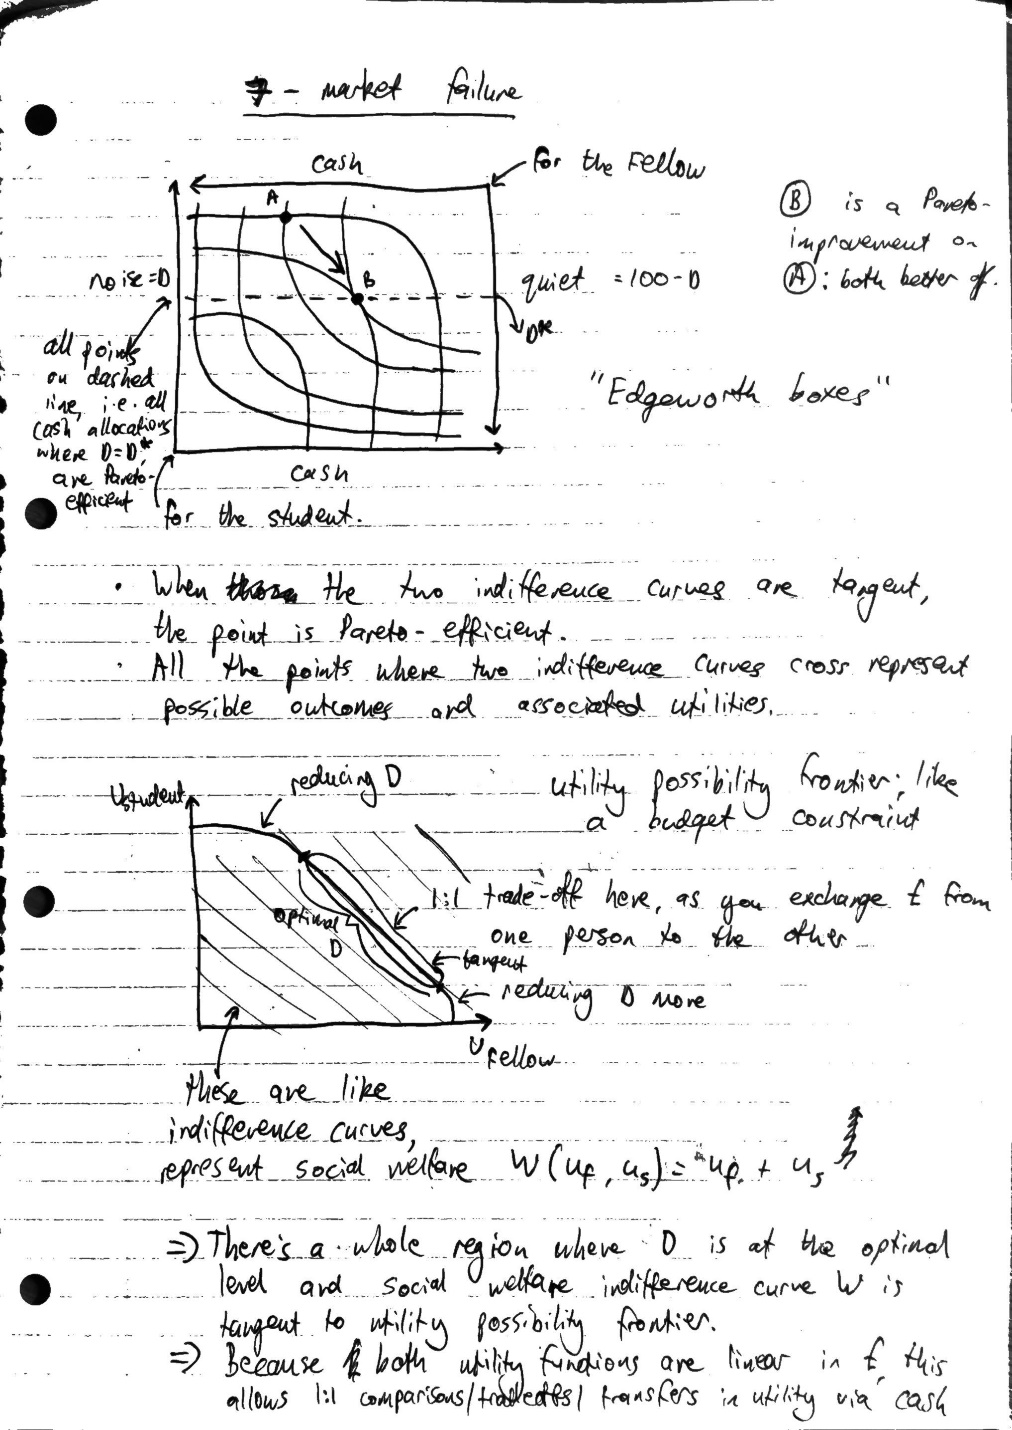 7 - market failure
cash
for the Fellow
A
B
noise = D
quiet = 100 - D
D*
Ⓑ is a Pareto-
improvement on
Ⓐ: both better off.
all points
on dashed
line, i.e. all
cash allocations
where D=D*,
are Pareto-
efficient
"Edgeworth boxes"
cash
for the student.
• When the two indifference curves are tangent,
the point is Pareto-efficient.
• All the points where two indifference curves cross represent
possible outcomes and associated utilities.
Ustudent
reducing D
utility possibility frontier; like
a budget constraint
1:1 trade-off here, as you exchange £ from
one person to the other
optimal
D
tangent
reducing D more
UFellow
these are like
indifference curves,
represent social welfare W(uf, us) = uf + us
⇒ There's a whole region where D is at the optimal
level and social welfare indifference curve W is
tangent to utility possibility frontier.
⇒ Because both utility functions are linear in £, this
allows 1:1 comparisons/tradeoffs/transfers in utility via cash